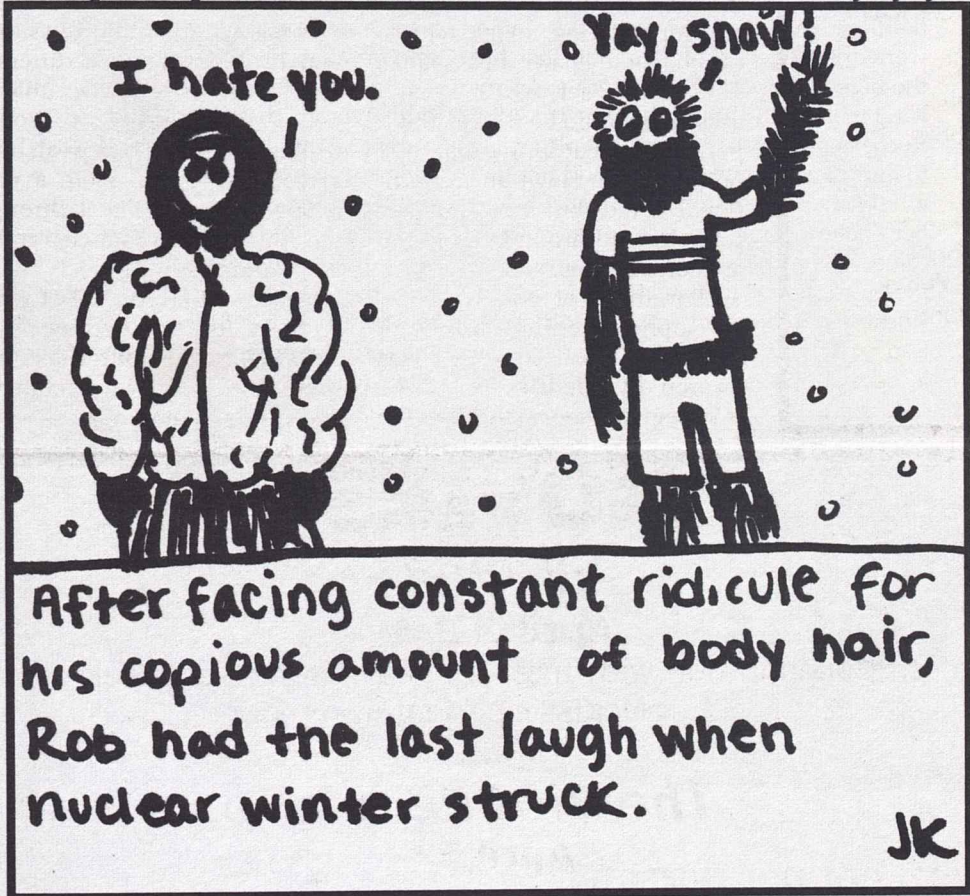 I hate you.
Yay, snow!
After facing constant ridicule for
his copious amount of body hair,
Rob had the last laugh when
nuclear winter struck.
JK